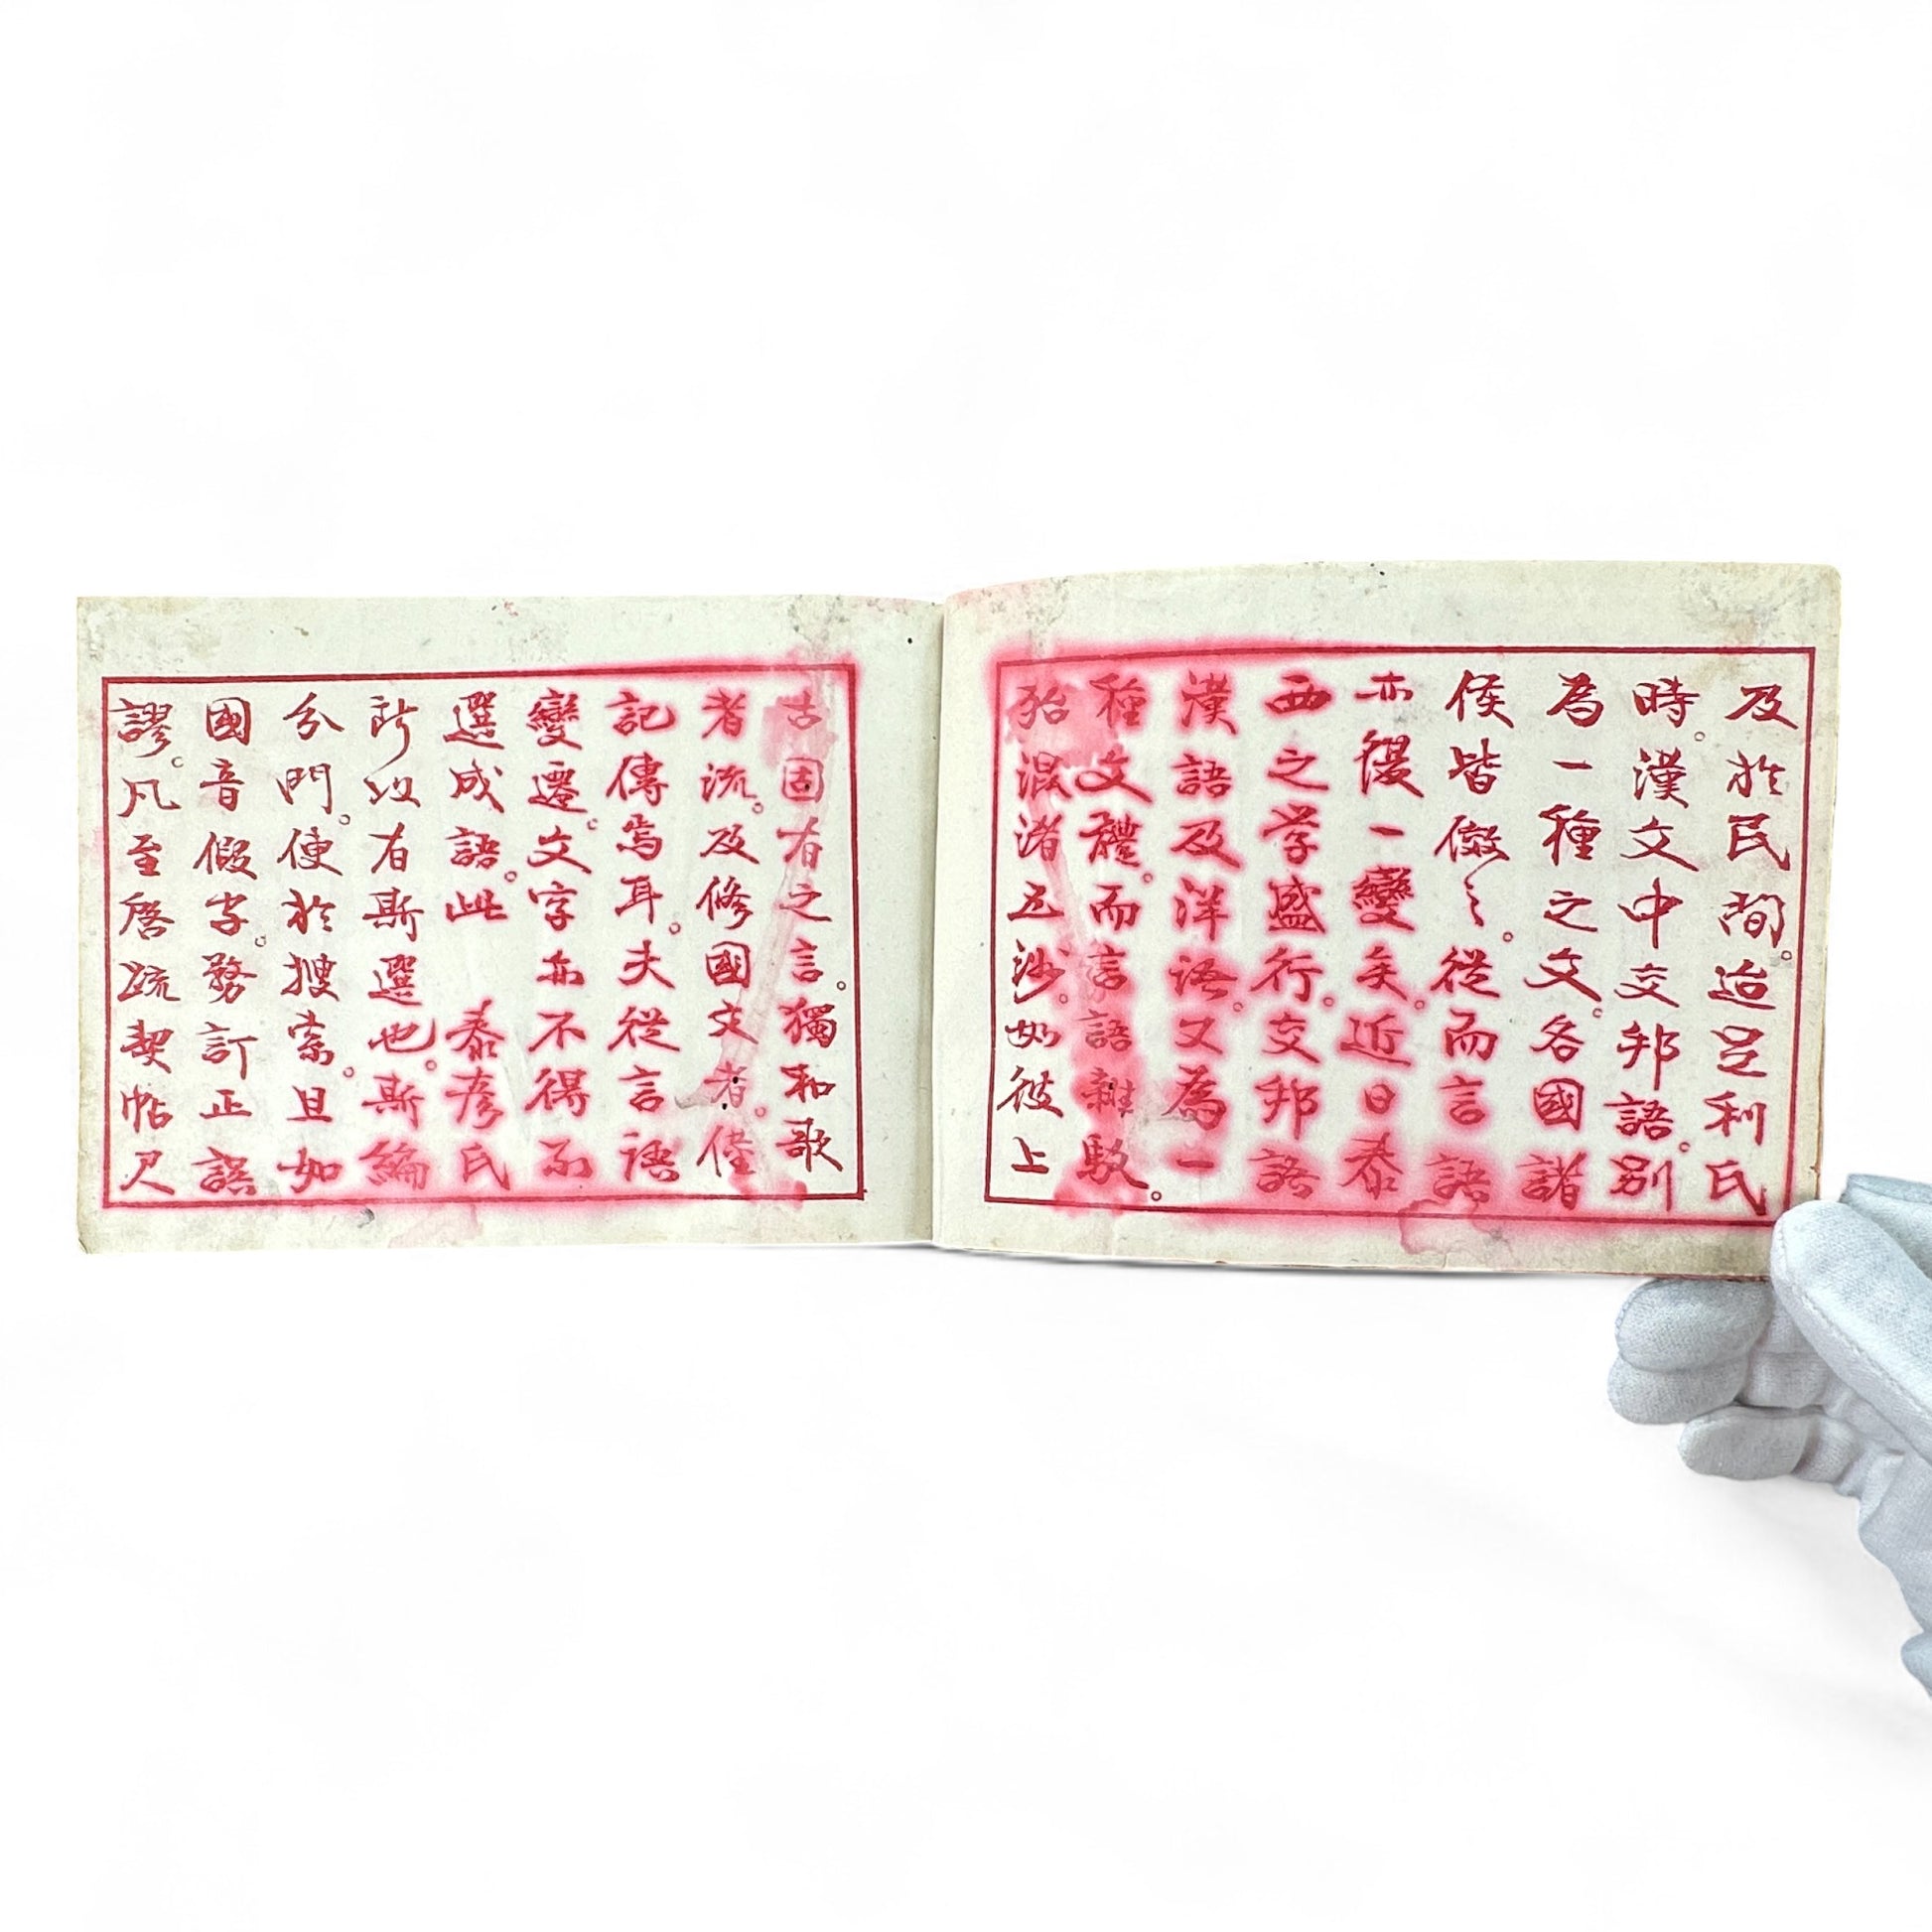 及於民間。迨足利氏
時。漢文中交邦語。別
為一種之文。各國諸
侯皆傚之。從而言語
亦復一變矣。近日泰
西之学盛行。交邦語
漢語及洋語。又為一
種文體。而言語雜駁。
殆混淆五沙。如彼上
古固有之言。獨和歌
者流。及修國文者。僅
記傳焉耳。夫從言語
變遷。文字亦不得不
選成語。此 泰彦氏
所以有斯選也。斯編
分門。便於搜索。且如
國音假字。務訂正誤
謬。凡至啓疏契帖尺